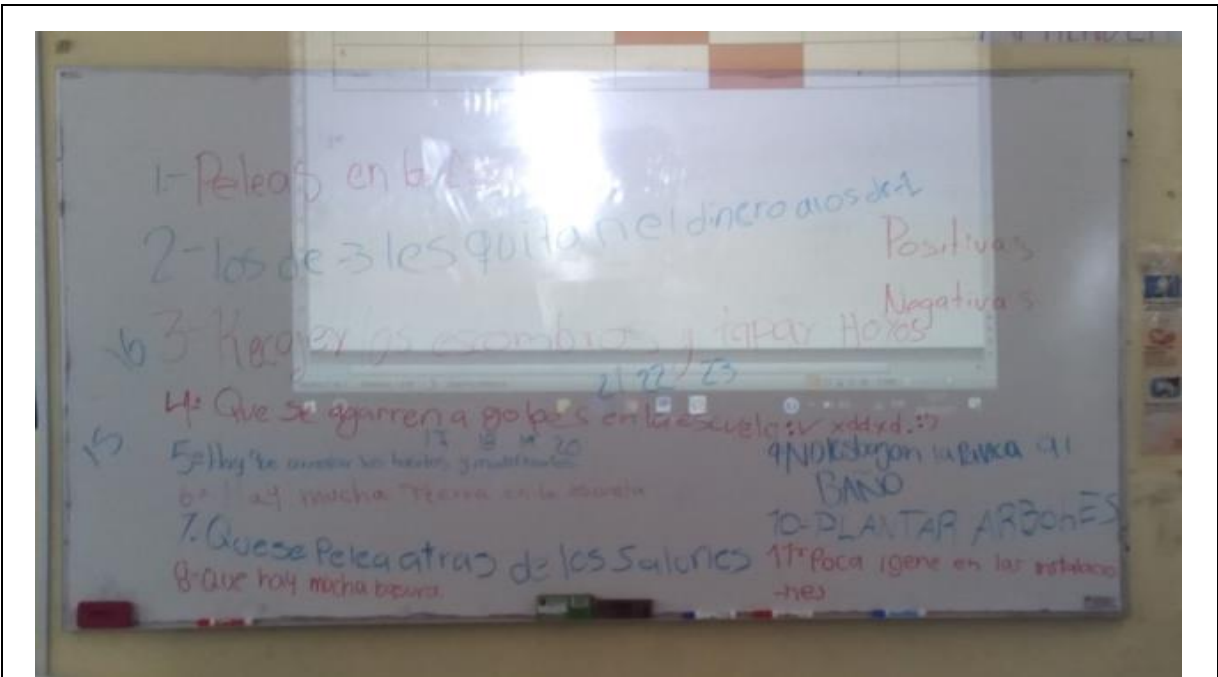 1.- Peleas en la
2-los de 3 les quitan el dinero a los de 1
Positivas
Negativas
6 3-Recoger los escombros y tapar Hoyos
21 22 23
4: Que se agarren a golpes en la escuela :v xddxd.:?
15
17 18 19 20
5=Hay que
6= Hay mucha Tierra en la escuela
7. Que se Pelea atras de los Salones
8-que hay mucha basura.
9 NO la BAÑO
10-PLANTAR ARBOLES
11- Poca igene en las instalacio
-nes